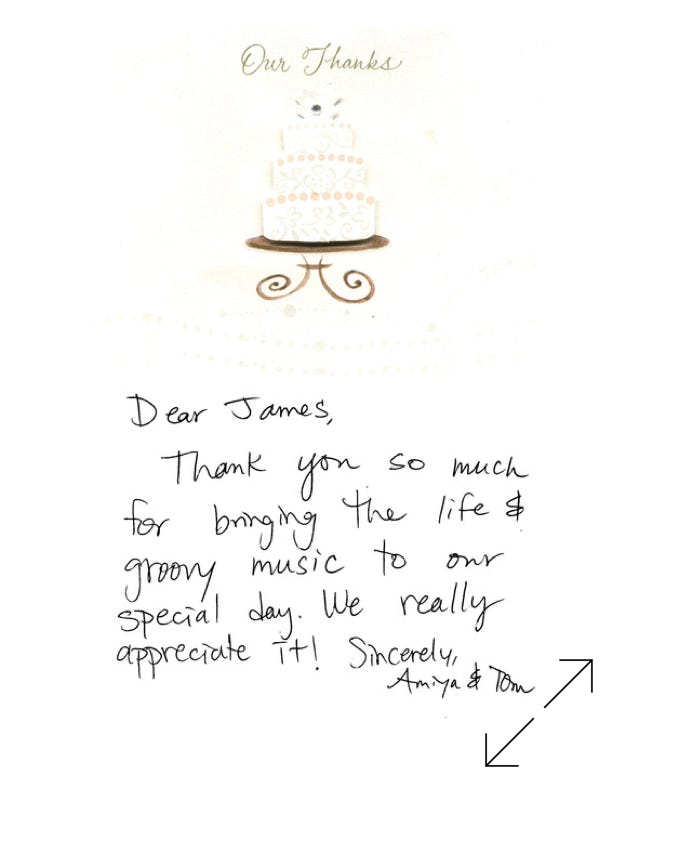 Our Thanks
Dear James,
Thank you so much
for bringing the life &
groovy music to our
special day. We really
appreciate it! Sincerely,
Amiya & Tom